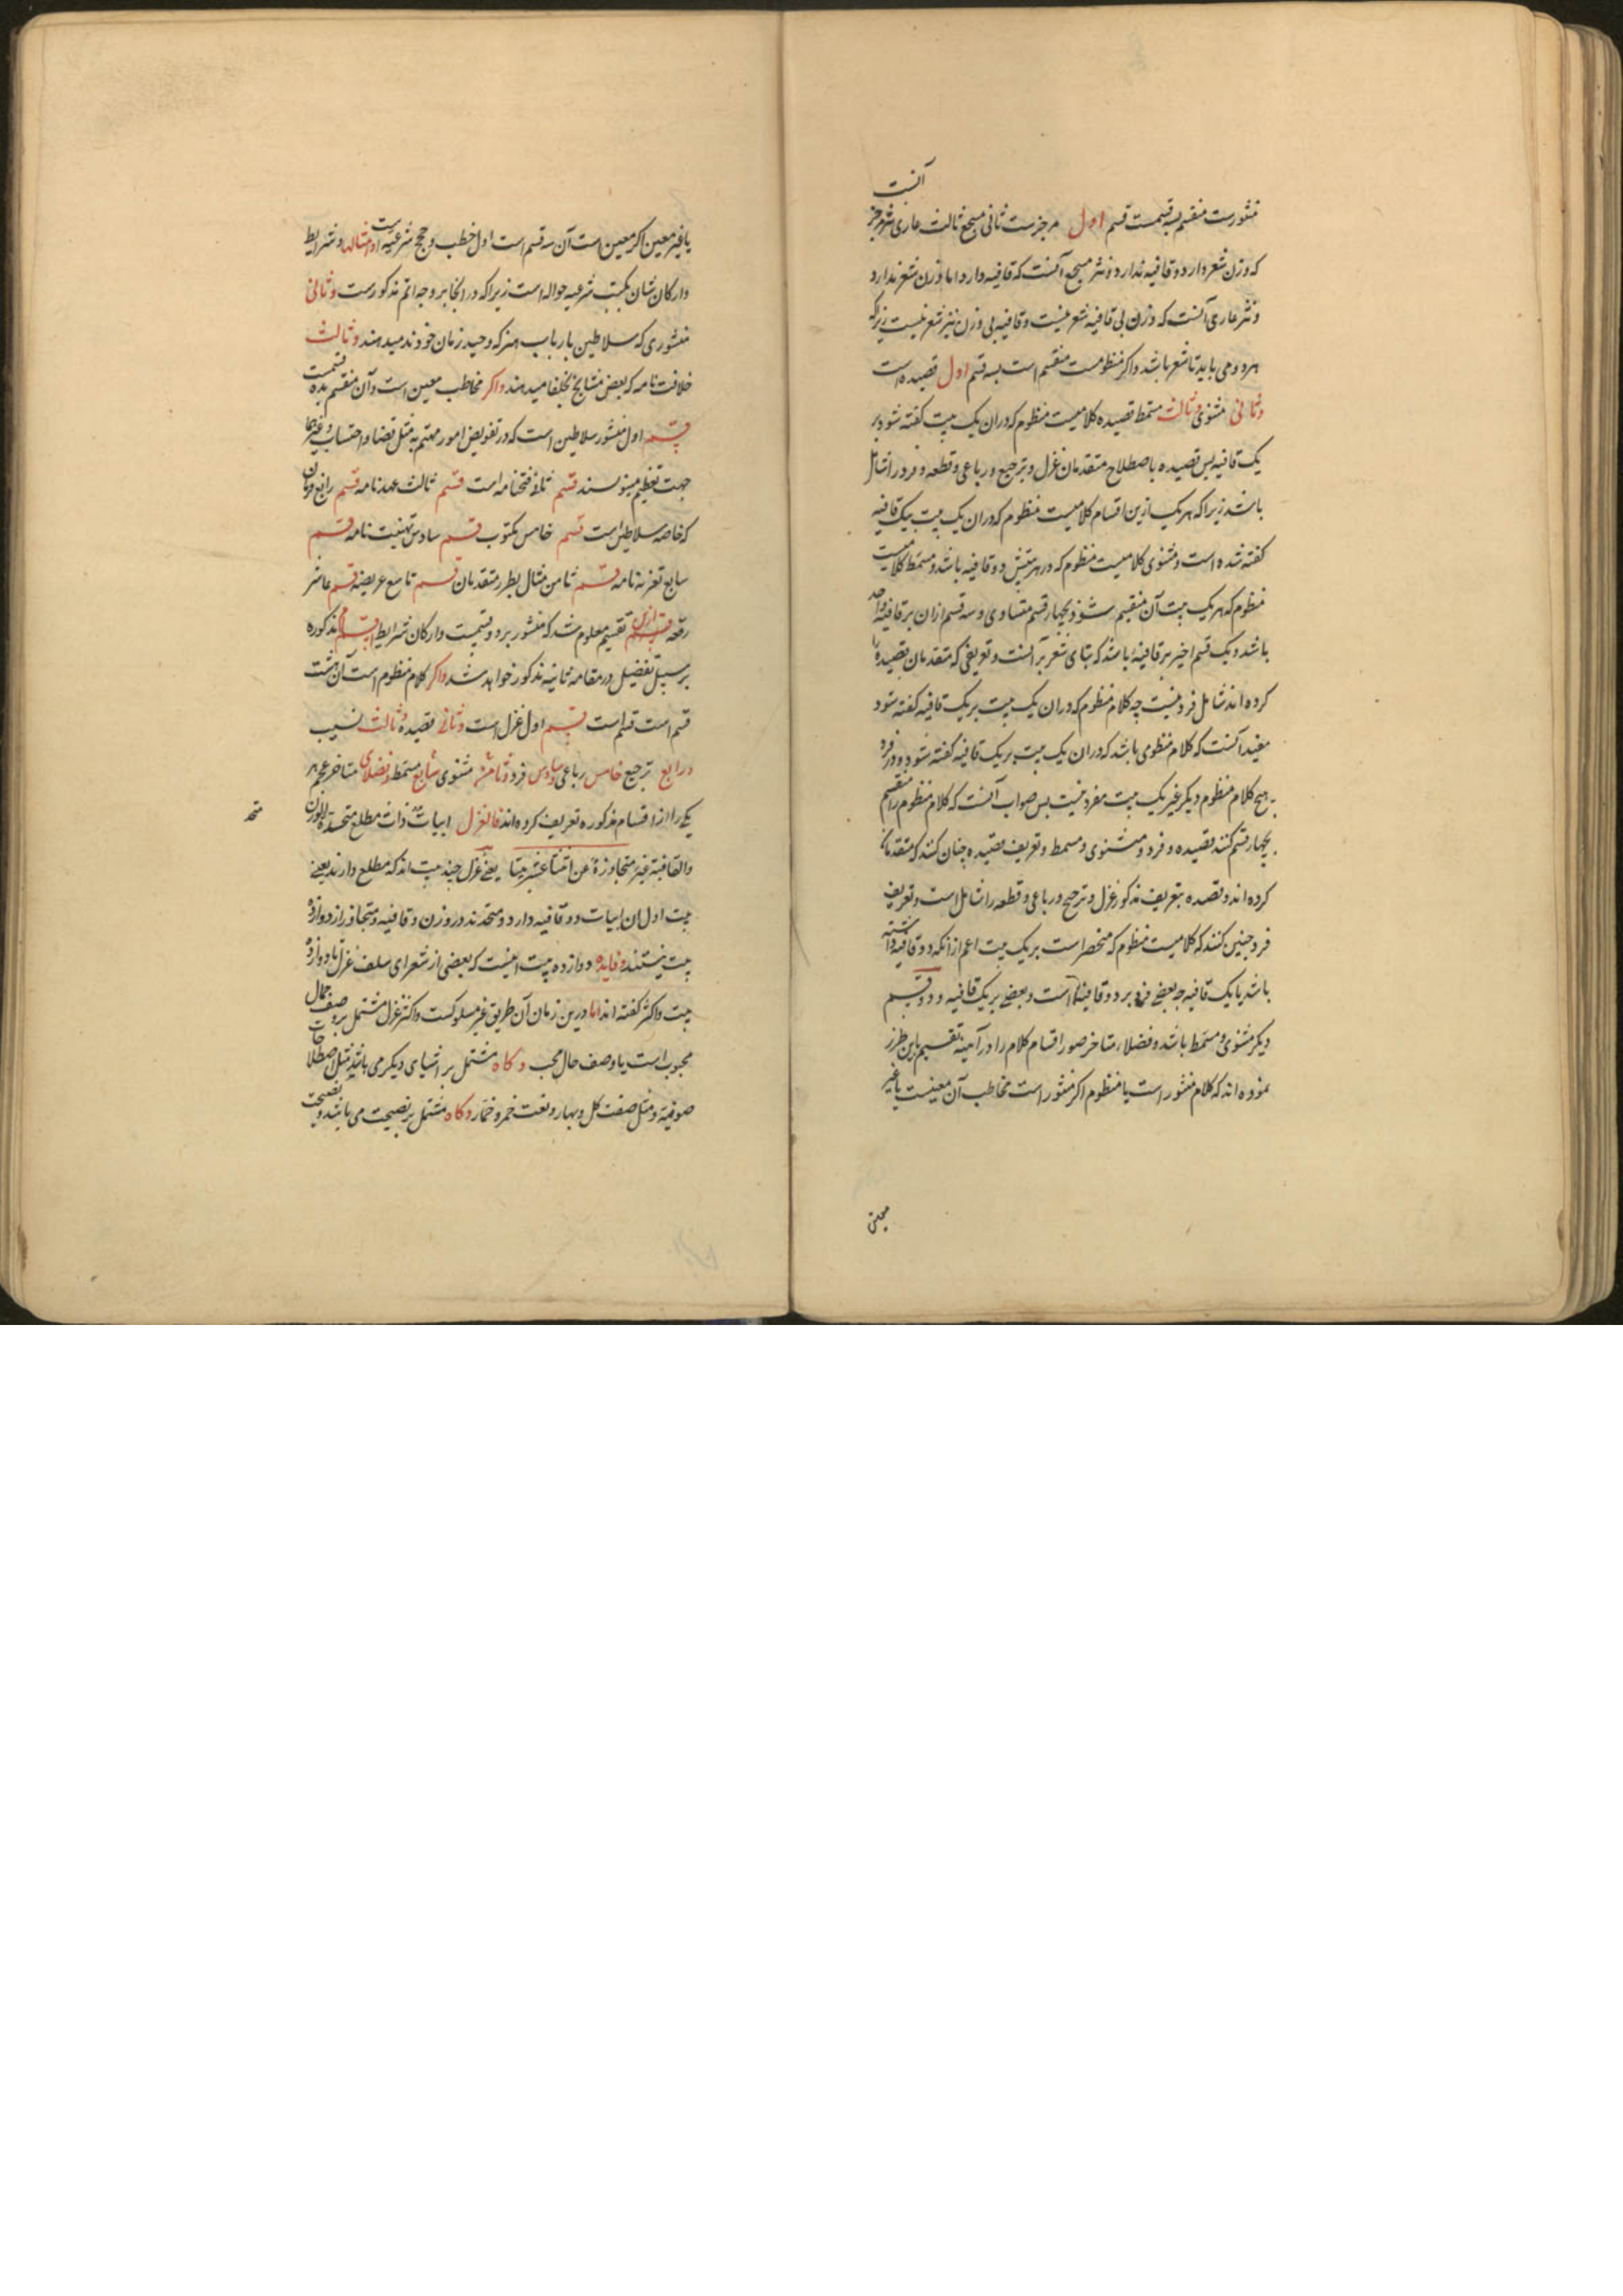 منثورست منقسم بسه قسمست قسم اول مرجزست ثانی مسجع ثالث عاری نثر مرجز آنست
که وزن شعر دارد و قافیه ندارد و نثر مسجع آنست که قافیه دارد اما وزن شعر ندارد
و نثر عاری آنست که وزن بی قافیه شعر نیست و قافیه بی وزن نیز شعر نیست زیراکه
هر دو می باید تا شعر باشد واکر منظومست منقسم است بسه قسم اول قصیده است
وثانی مثنوی وثالث مسمط قصیده کلامیست منظوم که دران یک بیت کفته شود بر
یک قافیه بس قصیده باصطلاح متقدمان غزل و ترجیع و رباعی و قطعه و فرد را شامل
باشد زیراکه هریک ازین اقسام کلامیست منظوم که دران یک بیت بیک قافیه
کفته شده است و مثنوی کلامیست منظوم که در هر بیتش دو قافیه باشد و مسمط کلامیست
منظوم که هر یک بیت آن منقسم شود بچهار قسم متساوی و سه قسم ازان بر قافیه واحد
باشد و یک قسم اخیر بر قافیه باشد که بنای شعر بر آنست و تعریفی که متقدمان قصیده را
کرده اند شامل فرد نیست چه کلام منظوم که دران یک بیت بر یک قافیه کفته شود
مفید آنست که کلام منظومی باشد که دران یک بیت بر یک قافیه کفته شود و در فرد
هیچ کلام منظوم دیکر غیر یک بیت مفرد نیست بس صواب آنست که کلام منظوم را منقسم
بچهار قسم کنند قصیده و فرد و مثنوی و مسمط و تعریف قصیده چنان کنند که متقدمان
کرده اند و قصیده بتعریف مذکور غزل و ترجیع و رباعی و قطعه را شامل است و تعریف
فرد چنین کنند که کلامیست منظوم که منحصر است بر یک بیت اعم ازانکه دو قافیه داشته
باشد یا یک قافیه چه بعضی فرد بر دو قافیه است و بعضی بر یک قافیه و دو قسم
دیکر مثنوی و مسمط باشد و فضلاء متاخر صور اقسام کلام را در آینه تقسیم باین طرز
نموده اند که کلام منثور است یا منظوم اکر منثور است مخاطب آن معینست یا غیر
یا غیر معین اکر معین است آن سه قسم است اول خطب و حجج شرعیه است و امثالها و شرایط
وارکان شان بکتب شرعیه حواله است زیراکه در انجا بر وجه اتم مذکورست وثانی
منثوری که سلاطین بارباب هنر که وحید زمان خودند میدهند وثالث
خلافت نامه که بعض مشایخ بخلفا میدهند واکر مخاطب معین است و آن منقسم بده قسمست
قسم اول منشور سلاطین است که در تفویض امور مهتم به مثل قضا و احتساب و غیرهما
جهت تعظیم مینویسند قسم فتحنامه است قسم ثالث عهدنامه قسم رابع فرمان
که خاصه سلاطین است قسم خامس مکتوب قسم سادس تهنیت نامه قسم
سابع تعزیه نامه قسم ثامن مثال بطرز متقدمان قسم تاسع عریضه قسم عاشر
رقعه ازین تقسیم معلوم شد که منثور بر دو قسمست وارکان شرایط اقسام مذکوره
بر سبیل تفضیل در مقامه ثانیه مذکور خواهد شد واکر کلام منظوم است آن هشت
قسم است قسم اول غزل است وثانی قصیده وثالث نسیب
ورابع ترجیع خامس رباعی وسادس فرد وثامن مثنوی سابع مسمط وفضلای متاخر عجم هر
یکی را از اقسام مذکوره تعریف کرده اند فالغزل ابیات ذات مطلع متحدة الوزن
والقافیة غیر متجاوزة عن اثنا عشر بیتا یعنی غزل چند بیت اند که مطلع دارند یعنی
بیت اول ان ابیات دو قافیه دارد و متحدند در وزن و قافیه و متجاوز از دوازده
بیت نیستند وفایده دوازده بیت اینست که بعضی از شعرای سلف غزل تا دوازده
بیت واکثر کفته اند اما درین زمان آن طریق غیر مسلوکست واکثر غزل مشتمل بر وصف جمال
محبوب است یا وصف حال محب وکاه مشتمل بر اشیای دیکر می باشد مثل اصطلاحات
صوفیه و مثل صفت کل و بهار و نعت خمر و خمار وکاه مشتمل بر نصیحت می باشد و نصیحت